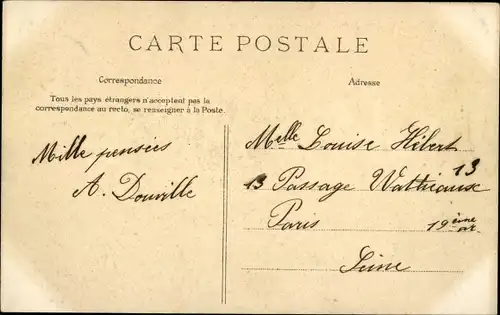 CARTE POSTALE
Correspondance
Tous les pays étrangers n'acceptent pas la
correspondance au recto, se renseigner à la Poste.
Mille pensées
A. Douville
Adresse
Melle Louise Hébert
13 Passage Wathieaux 13
Paris 19ème ar.
Seine